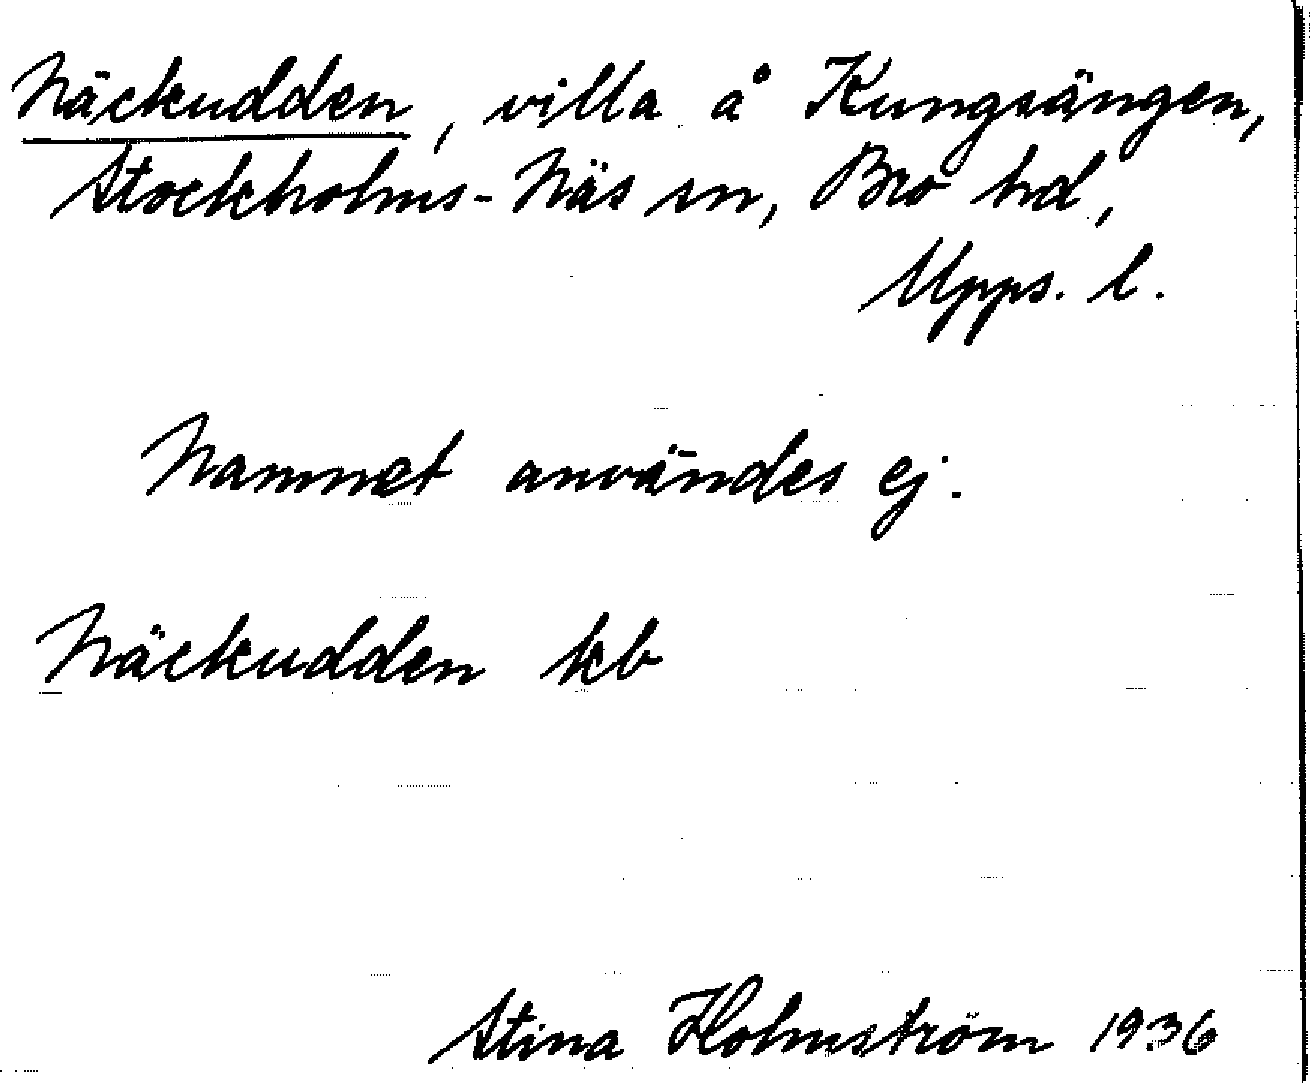 Näckudden, villa å Kungsängen,
Stockholms-Näs sn, Bro hd,
Upps. l.
Namnet användes ej.
Näckudden kb
Stina Holmström 1936